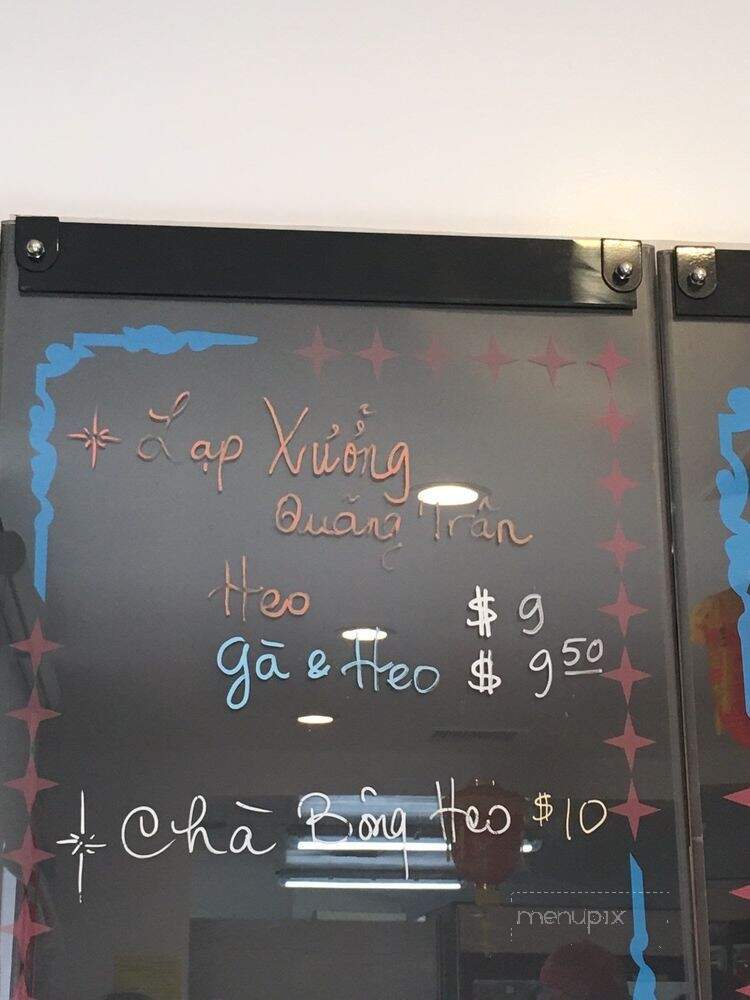 Lạp Xưởng
Quãng Trân
Heo $ 9
gà & Heo $ 9 50
Chà Bông Heo $10
menupix